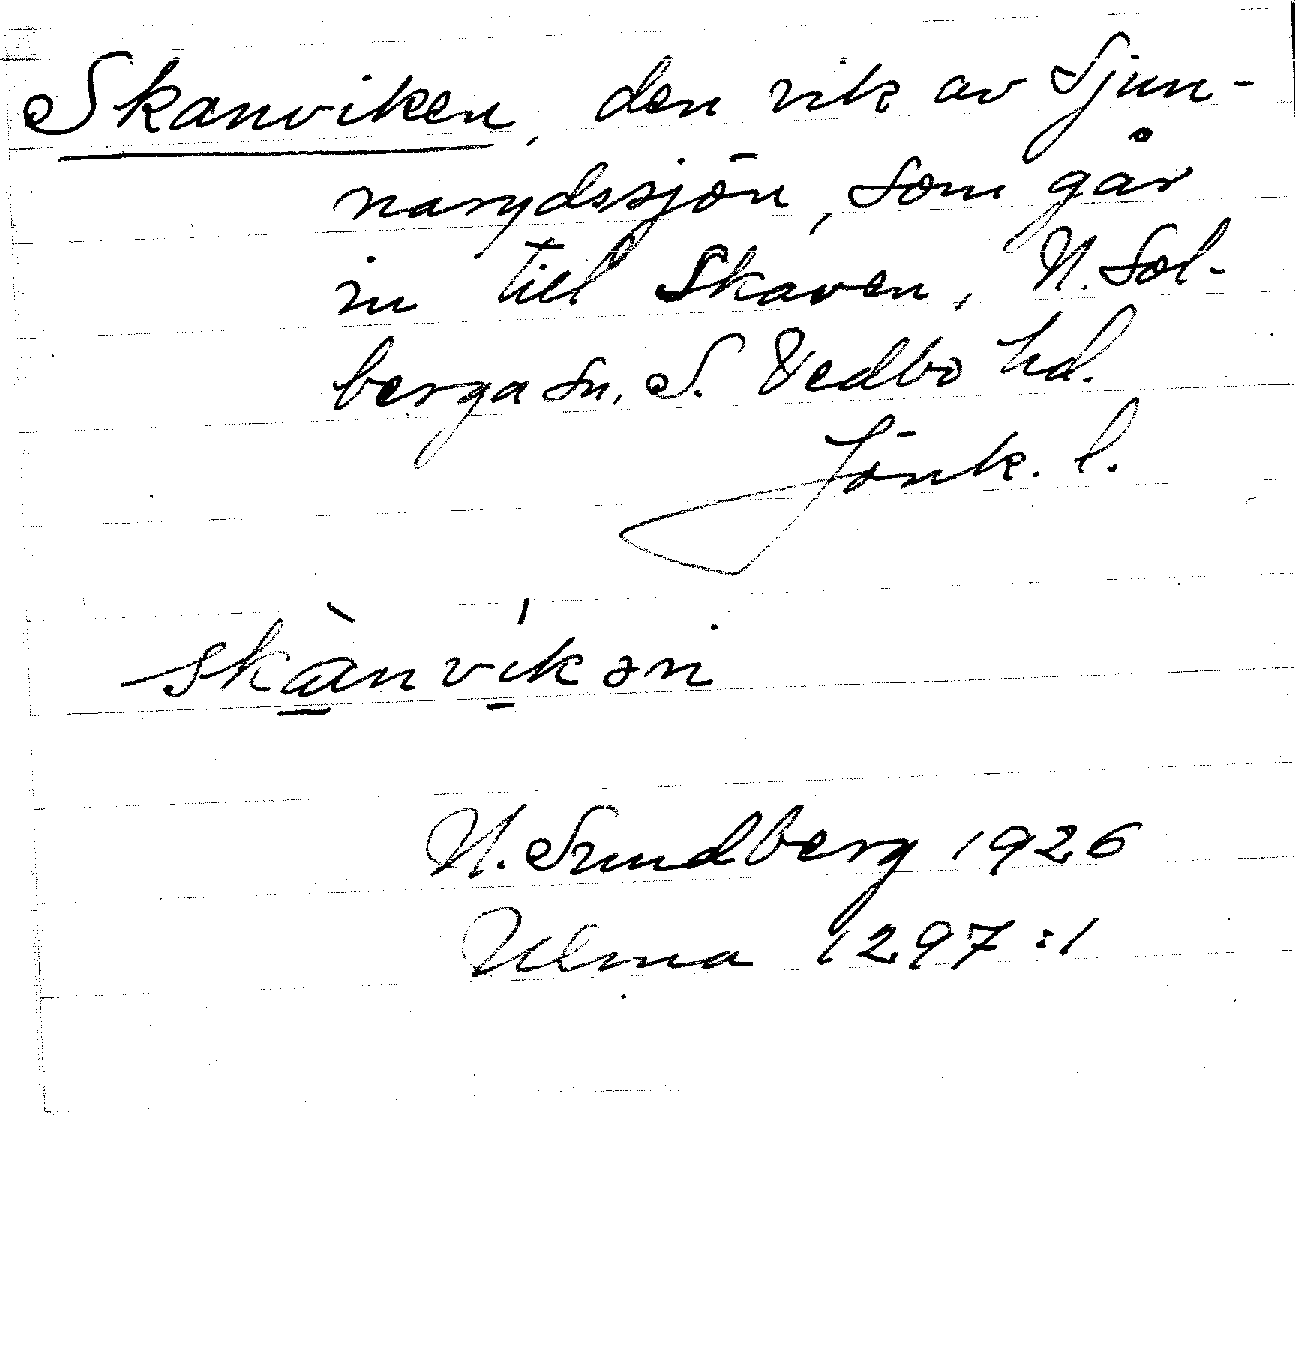 Skanviken, den vik av Sjun-
narydssjön, som går
in till Skaven, N. Sol-
berga sn. S. Vedbo hd.
Jönk. l.
skànvíkən
H. Sundberg 1926
Ulma 1297:1